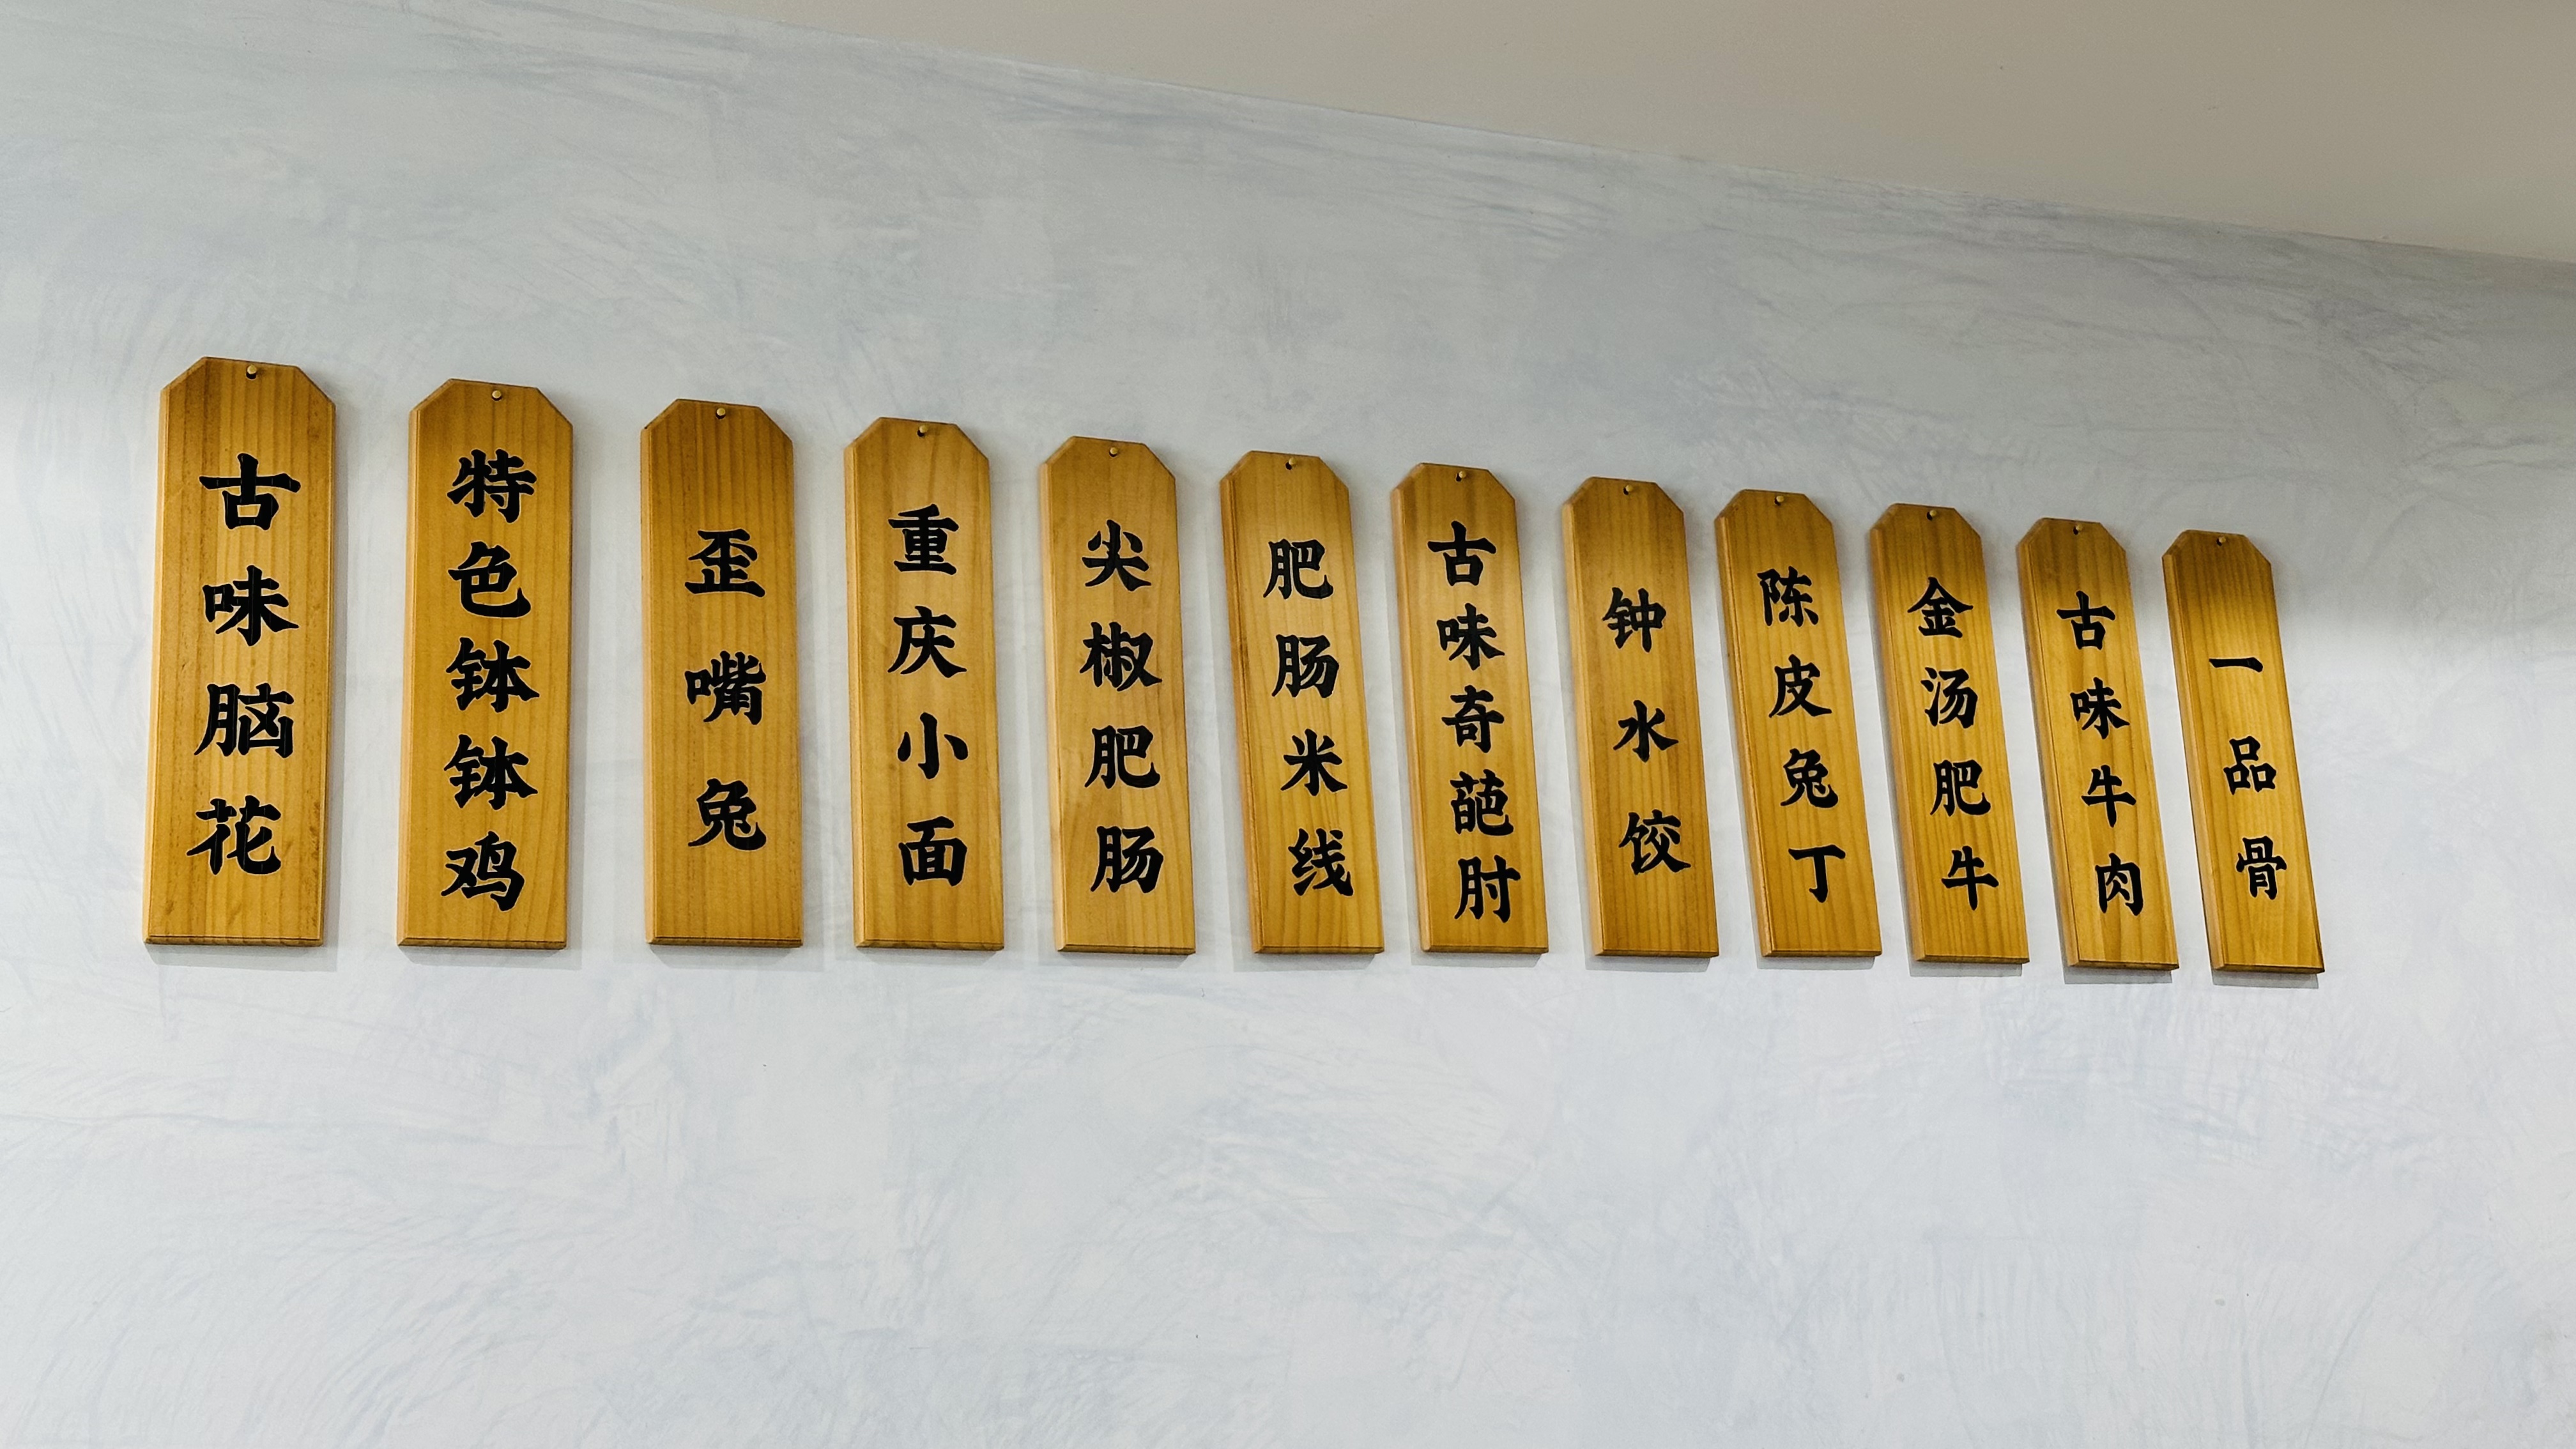 古味脑花
特色钵钵鸡
歪嘴兔
重庆小面
尖椒肥肠
肥肠米线
古味奇葩肘
钟水饺
陈皮兔丁
金汤肥牛
古味牛肉
一品骨